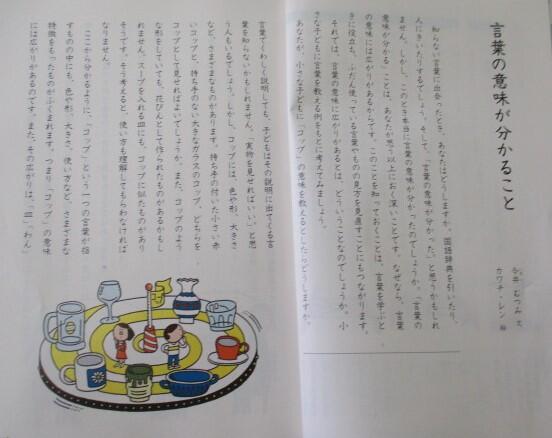 言葉の意味が分かること
今井むつみ 文
カワチ・レン 絵
知らない言葉に出会ったとき、あなたはどうしますか。国語辞典を引いたり、
人にきいたりするでしょう。そして、「言葉の意味が分かった。」と思うかもしれ
ません。しかし、このとき本当に言葉の意味が分かったのでしょうか。「言葉の
意味が分かる」ことは、あなたが思う以上におく深いことです。なぜなら、言葉
の意味には広がりがあるからです。このことを知っておくことは、言葉を学ぶと
きに役立ち、ふだん使っている言葉やものの見方を見直すことにもつながります。
それでは、言葉の意味に広がりがあるとは、どういうことなのでしょうか。小
さな子どもに言葉を教える例をもとに考えてみましょう。
あなたが、小さな子どもに「コップ」の意味を教えるとしたらどうしますか。
言葉でくわしく説明しても、子どもはその説明に出てくる言
葉を知らないかもしれません。「実物を見せればいい。」と思
う人もいるでしょう。しかし、コップには、色や形、大きさ
など、さまざまなものがあります。持ち手の付いた小さい赤
いコップと、持ち手のない大きなガラスのコップ、どちらを
コップとして見せればよいでしょうか。また、コップのよう
な形をしていても、花びんとして作られたものがあるかもし
れません。スープを入れる皿にも、コップに似たものがあり
そうです。そう考えると、使い方も理解してもらわなければ
なりません。
ここから分かるように、「コップ」という一つの言葉が指
すものの中にも、色や形、大きさ、使い方など、さまざまな
特徴をもったものがふくまれます。つまり、「コップ」の意味
には広がりがあるのです。また、その広がりは、「皿」「わん」